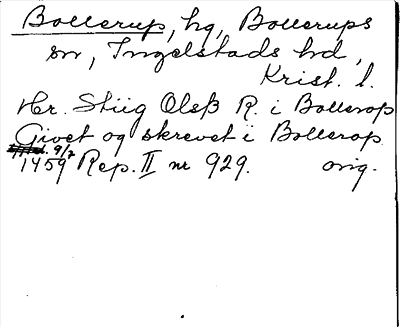 Bollerup, hg, Bollerups
sn, Ingelstads hd,
Krist. l.
Hr. Stiig Olsß R. i Bollerop
Givet og skrevet i Bollerop
9/7
1459 Rep. II nr 929. orig.